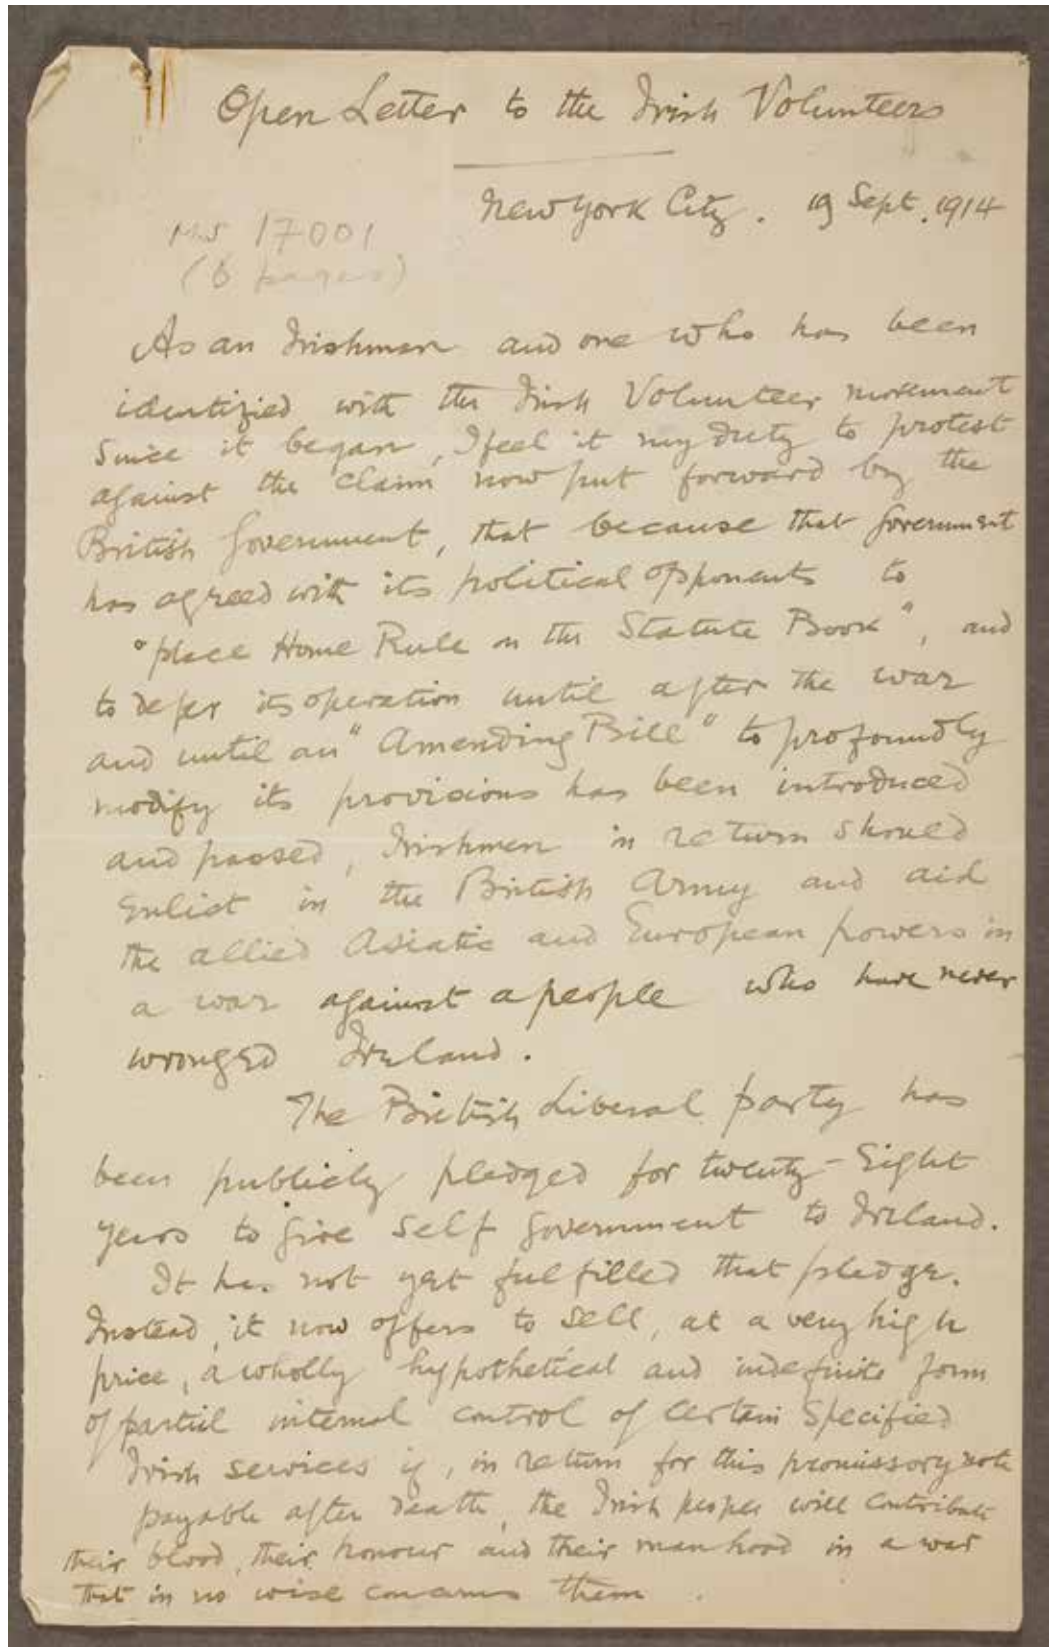 Open Letter to the Irish Volunteers
New York City. 19 Sept. 1914
MS 17001
(6 pages)
As an Irishman and one who has been
identified with the Irish Volunteer movement
since it began, I feel it my duty to protest
against the claim now put forward by the
British Government, that because that Government
has agreed with its political opponents to
"place Home Rule on the Statute Book", and
to defer its operation until after the war
and until an "Amending Bill" to profoundly
modify its provisions has been introduced
and passed, Irishmen in return should
enlist in the British Army and aid
the allied Asiatic and European powers in
a war against a people who have never
wronged Ireland.
The British Liberal party has
been publicly pledged for twenty-eight
years to give self government to Ireland.
It has not yet fulfilled that pledge.
Instead, it now offers to sell, at a very high
price, a wholly hypothetical and indefinite form
of partial internal control of certain specified
Irish services if, in return for this promissory note
payable after death, the Irish people will contribute
their blood, their honour and their manhood in a war
that in no wise concerns them.